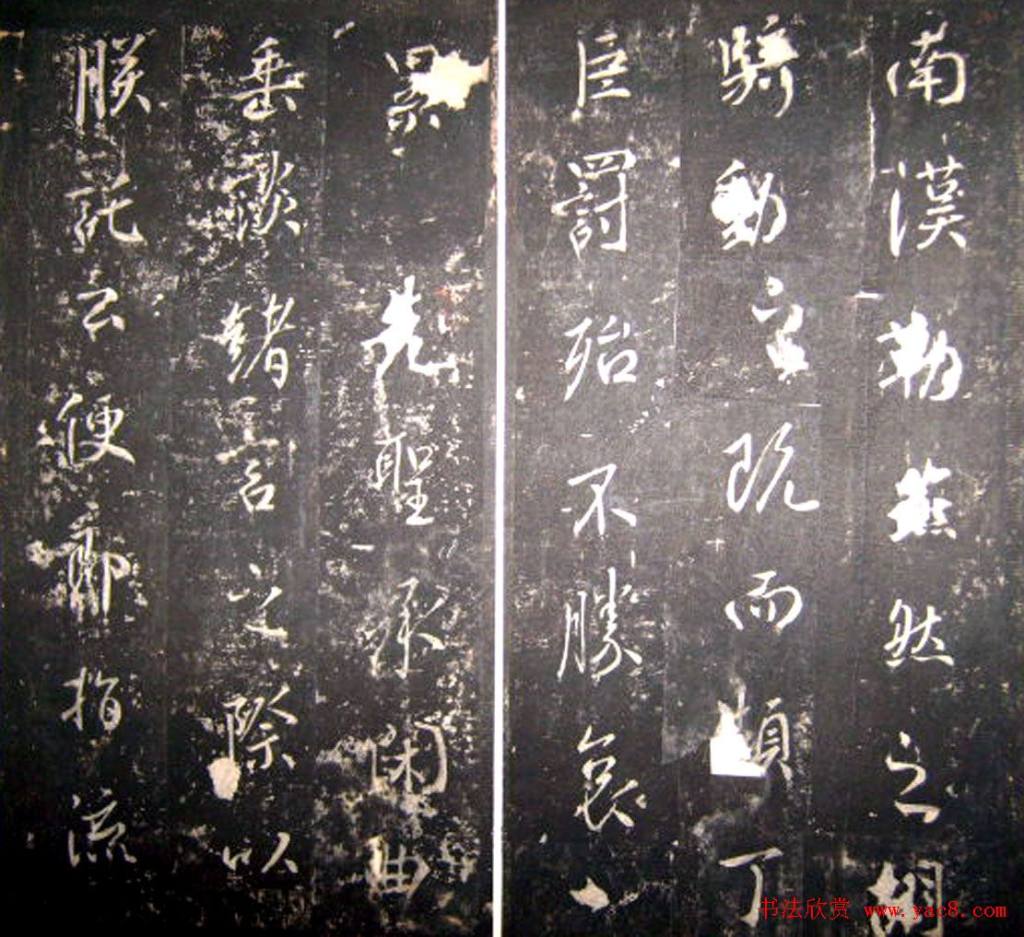 南漠勒燕然之胡
騎動言既而頻丁
臣罰殆不勝哀
景先聖承閑曲
垂談緒言之際以
朕託云便指流
书法欣赏 www.yac8.com